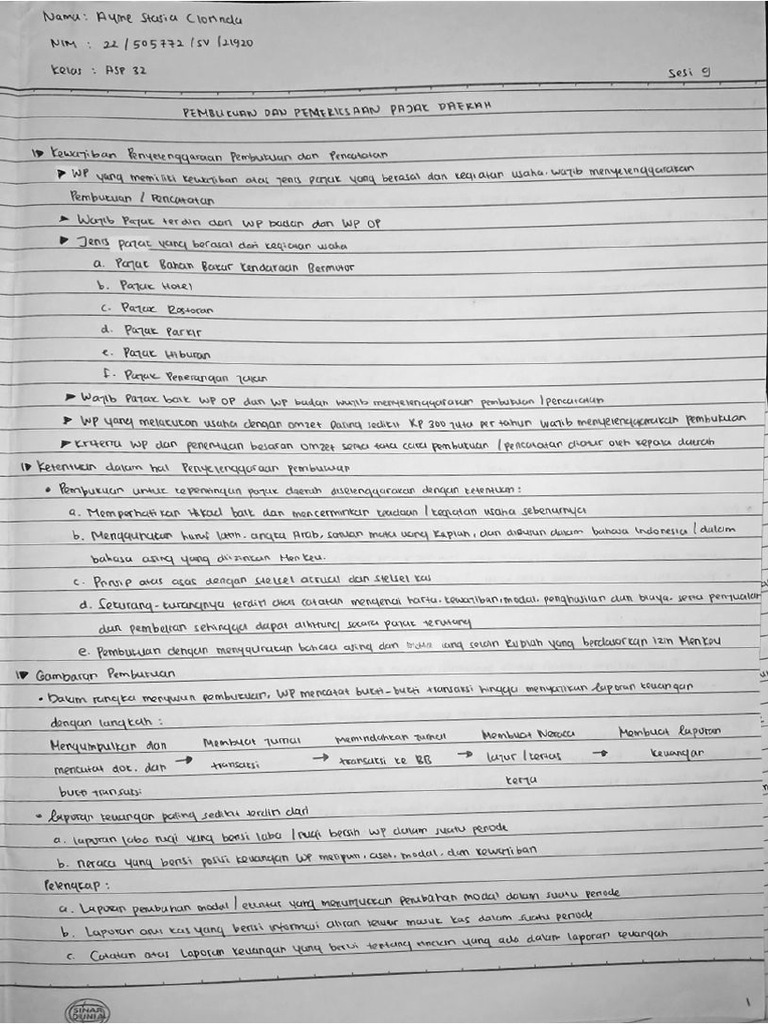 Nama : Ayme Stasia Clorinda
NIM : 22 / 505772 / SV / 21920
Kelas : ASP 32
Sesi 9
PEMBUKUAN DAN PEMERIKSAAN PAJAK DAERAH
Kewajiban Penyelenggaraan Pembukuan dan Pencatatan
WP yang memiliki kewajiban atas jenis pajak yang berasal dari kegiatan usaha. wajib menyelenggarakan
Pembukuan / Pencatatan
Wajib Pajak terdiri dari WP badan dan WP OP
Jenis pajak yang berasal dari kegiatan usaha
a. Pajak Bahan Bakar Kendaraan Bermotor
b. Pajak Hotel
c. Pajak Restoran
d. Pajak Parkir
e. Pajak Hiburan
f. Pajak Penerangan Jalan
Wajib Pajak baik WP OP dan WP badan wajib menyelenggarakan pembukuan / pencatatan
WP yang melakukan usaha dengan omzet paling sedikit Rp 300 juta per tahun wajib menyelenggarakan pembukuan
Kriteria WP dan penentuan besaran omzet serta tata cara pembukuan / pencatatan diatur oleh kepala daerah
Ketentuan dalam hal Penyelenggaraan pembukuan
• Pembukuan untuk kepentingan pajak daerah diselenggarakan dengan ketentuan :
a. Memperhatikan itikad baik dan mencerminkan keadaan / kegiatan usaha sebenarnya
b. Menggunakan huruf latin. angka Arab, satuan mata uang Rupiah, dan disusun dalam bahasa Indonesia / dalam
bahasa asing yang diizinkan Menkeu.
c. Prinsip atas asas dengan stelsel actrual dan stelsel kas
d. Sekurang-kurangnya terdiri atas catatan mengenai harta, kewajiban, modal, penghasilan dan biaya. serta penjualan
dan pembelian sehingga dapat dihitung secara pajak terutang
e. Pembukuan dengan menggunakan bahasa asing dan uang selain Rupiah yang berdasarkan izin Menkeu
Gambaran Pembukuan
• Dalam rangka menyusun pembukuan, WP mencatat bukti-bukti transaksi hingga menyajikan laporan keuangan
dengan langkah :
Mengumpulkan dan mencatat dok. dan bukti transaksi → Membuat jurnal transaksi → memindahkan jurnal transaksi ke BB → Membuat Neraca lajur / kertas kerja → Membuat laporan keuangan
• Laporan keuangan paling sedikit terdiri dari
a. laporan laba rugi yang berisi laba / rugi bersih WP dalam suatu periode
b. neraca yang berisi posisi keuangan WP meliputi, aset, modal, dan kewajiban
Pelengkap :
a. Laporan perubahan modal / ekuitas yang menunjukkan perubahan modal dalam suatu periode
b. Laporan arus kas yang berisi informasi aliran keluar masuk kas dalam suatu periode
c. Catatan atas Laporan keuangan yang berisi tentang rincian yang ada dalam laporan keuangan
SINAR
DUNIA
1